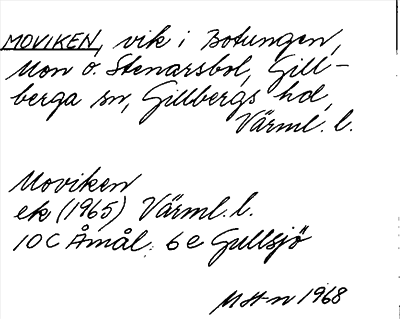 MOVIKEN, vik i Botungen,
Mon o. Stenarsbol, Gill-
berga sn, Gillbergs hd,
Värml. l.
Moviken
ek (1965) Värml. l.
10 C Åmål: 6 e Gullsjö
MHn 1968